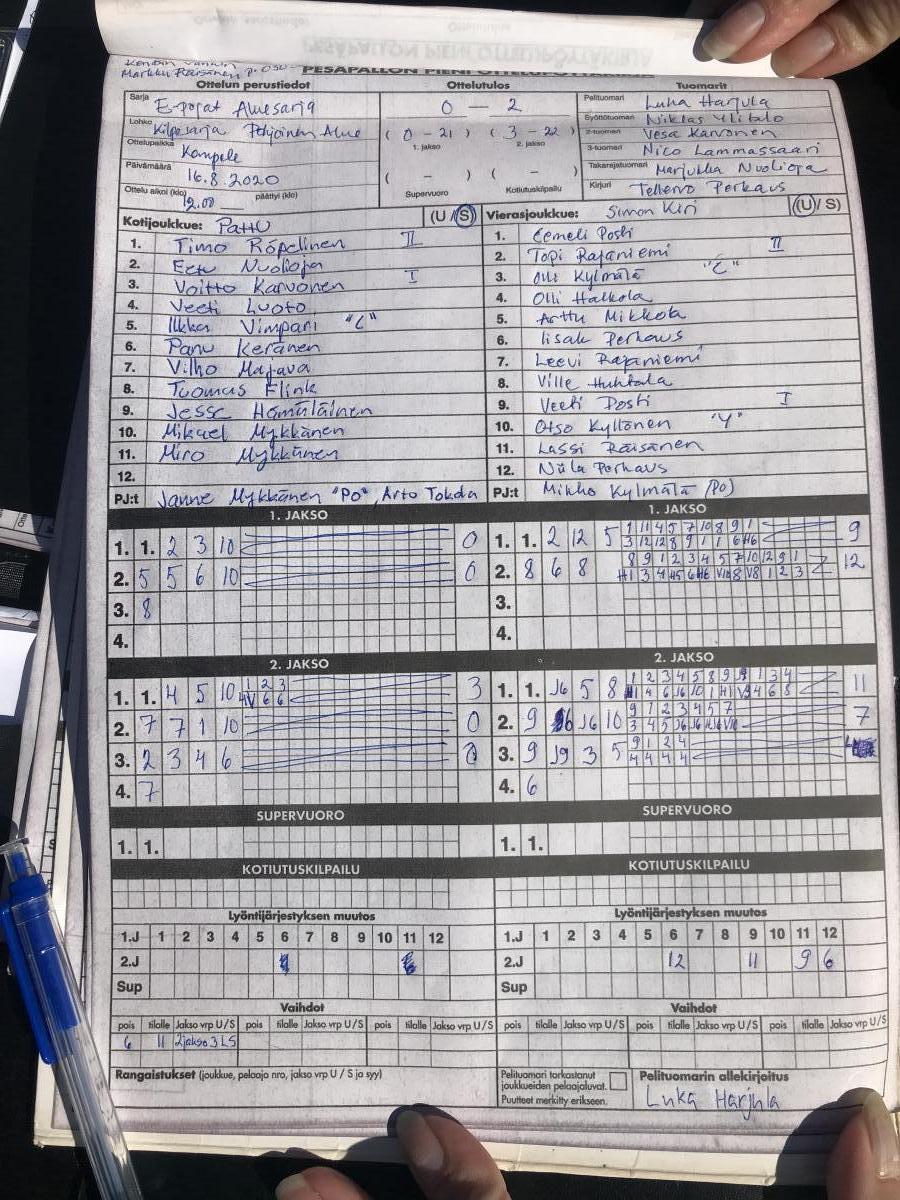 Markku Räisänen
PESÄPALLON PIENI OTTELUPÖYTÄKIRJA
Ottelun perustiedot
Sarja E-pojat Aluesarja
Lohko Kilpasarja Pohjoinen Alue
Ottelupaikka Kempele
Päivämäärä 16.8.2020
Ottelu alkoi (klo) 12.00 päättyi (klo)
Ottelutulos
0 — 2
( 0 - 21 ) ( 3 - 22 )
1. jakso 2. jakso
( - ) ( - )
Supervuoro Kotiutuskilpailu
Tuomarit
Pelituomari Luka Harjula
Syöttötuomari Niklas Ylitalo
2-tuomari Vesa Karvonen
3-tuomari Nico Lammassaari
Takarajatuomari Marjukka Nuolioja
Kirjuri Tellervo Perhaus
Kotijoukkue: Pattu (U/S)
1. Timo Röpelinen II
2. Eetu Nuolioja
3. Voitto Karvonen I
4. Veeti Luoto
5. Ilkka Vimpari "L"
6. Panu Keränen
7. Vilho Majava
8. Tuomas Flink
9. Jesse Hämäläinen
10. Mikael Mykkänen
11. Miro Mykkänen
12.
PJ:t Janne Mykkänen "PO", Arto Tokola
Vierasjoukkue: Simon Kiri (U/S)
1. Eemeli Posti
2. Topi Rajaniemi II
3. Olli Kylmälä "L"
4. Olli Halkola
5. Arttu Mikkola
6. Iisak Perhaus
7. Leevi Rajaniemi
8. Ville Huhtala
9. Veeti Posti I
10. Otso Kyllönen "Y"
11. Lassi Räisänen
12. Niila Perhaus
PJ:t Mikko Kylmälä (PO)
1. JAKSO
1. 1. 2 3 10 0
2. 5 5 6 10 0
3. 8
4.
1. JAKSO
1. 1. 2 12 5 9
2. 8 6 8 12
3.
4.
2. JAKSO
1. 1. 4 5 10 1 2 3 3
2. 7 7 1 10 0
3. 2 3 4 6 0
4. 7
2. JAKSO
1. 1. J6 5 8 11
2. 9 J6 10 9 1 2 3 4 5 7 7
3. 9 J9 3 5 9 1 2 4
4 4 4 4
4. 6
SUPERVUORO
1. 1.
SUPERVUORO
1. 1.
KOTIUTUSKILPAILU
KOTIUTUSKILPAILU
Lyöntijärjestyksen muutos
1.J 1 2 3 4 5 6 7 8 9 10 11 12
2.J
Sup
Lyöntijärjestyksen muutos
1.J 1 2 3 4 5 6 7 8 9 10 11 12
2.J 12 11 9 6
Sup
Vaihdot
pois tilalle Jakso vrp U/S pois tilalle Jakso vrp U/S pois tilalle Jakso vrp U/S
6 11 2jakso 3 LS
Vaihdot
pois tilalle Jakso vrp U/S pois tilalle Jakso vrp U/S pois tilalle Jakso vrp U/S
Rangaistukset (joukkue, pelaaja nro, jakso vrp U / S ja syy)
Pelituomari tarkastanut
joukkueiden pelaajaluvat.
Puutteet merkitty erikseen.
Pelituomarin allekirjoitus
Luka Harjula